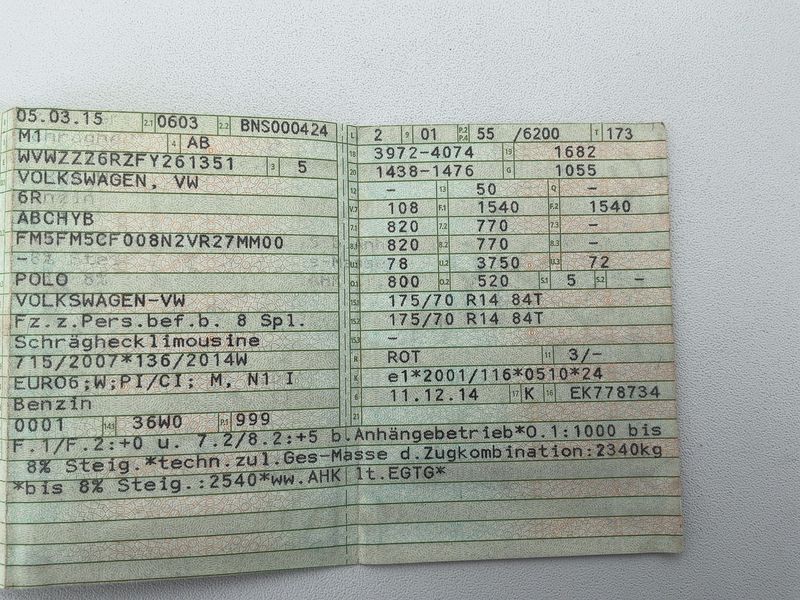 05.03.15 2.1 0603 2.2 BNS000424
M1 4 AB
WVWZZZ6RZFY261351 3 5
VOLKSWAGEN, VW
6R
ABCHYB
FM5FM5CF008N2VR27MM00
-
POLO
VOLKSWAGEN-VW
Fz.z.Pers.bef.b. 8 Spl.
Schräghecklimousine
715/2007*136/2014W
EURO6;W;PI/CI; M, N1 I
Benzin
0001 14.1 36W0 P.1 999
L 2 9 01 P.2 P.4 55 /6200 T 173
18 3972-4074 19 1682
20 1438-1476 G 1055
12 - 13 50 Q -
V.7 108 F.1 1540 F.2 1540
7.1 820 7.2 770 7.3 -
8.1 820 8.2 770 8.3 -
U.1 78 U.2 3750 U.3 72
O.1 800 O.2 520 S.1 5 S.2 -
15.1 175/70 R14 84T
15.2 175/70 R14 84T
15.3 -
R ROT 11 3/-
K e1*2001/116*0510*24
6 11.12.14 17 K 16 EK778734
21
F.1/F.2:+0 u. 7.2/8.2:+5 b.Anhängebetrieb*O.1:1000 bis
8% Steig.*techn.zul.Ges-Masse d.Zugkombination:2340kg
*bis 8% Steig.:2540*ww.AHK lt.EGTG*